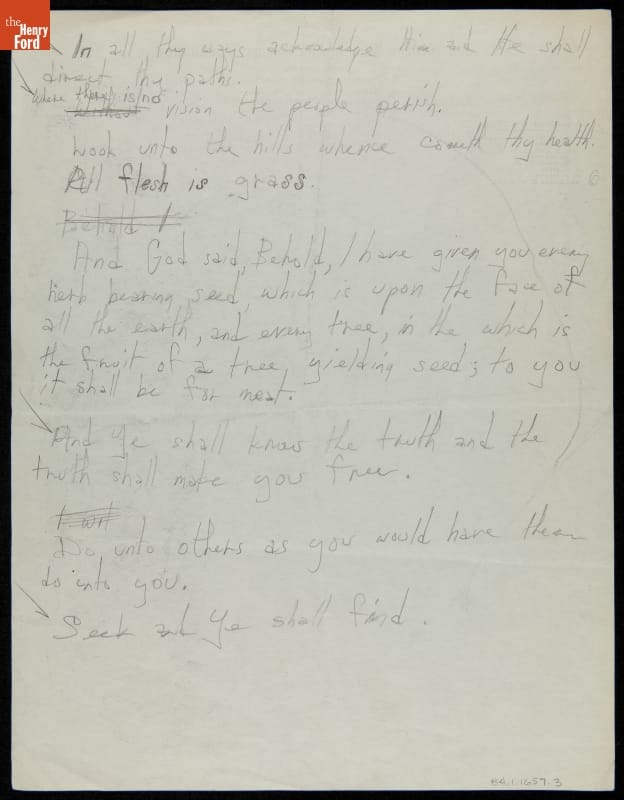 the
Henry
Ford
In all thy ways acknowledge Him and He shall
direct thy paths.
Where there is no
Without vision the people perish.
Look unto the hills whence cometh thy health.
All flesh is grass.
Behold I
And God said, Behold, I have given you every
herb bearing seed, which is upon the face of
all the earth, and every tree, in the which is
the fruit of a tree yielding seed; to you
it shall be for meat.
And Ye shall know the truth and the
truth shall make you free.
I will
Do unto others as you would have them
do unto you.
Seek and Ye shall find.
84.1.1657.3